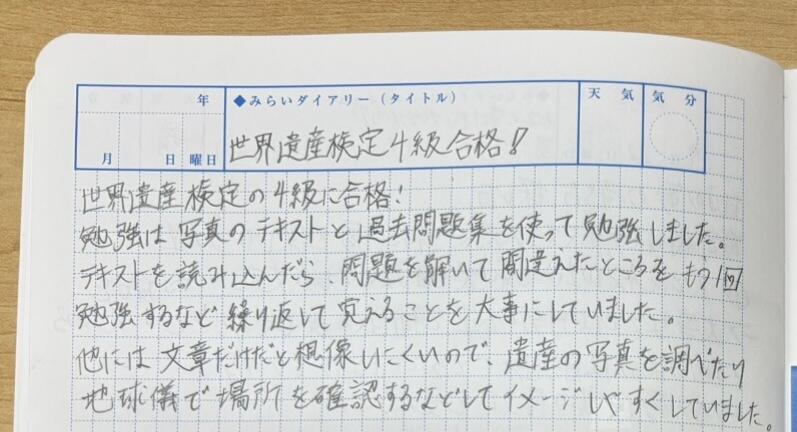 年 ◆みらいダイアリー（タイトル） 天気 気分
月 日 曜日 世界遺産検定4級合格！！
世界遺産検定の4級に合格！
勉強は写真のテキストと過去問題集を使って勉強しました。
テキストを読み込んだら、問題を解いて間違えたところをもう1回
勉強するなど繰り返して覚えることを大事にしていました。
他には文章だけだと想像しにくいので、遺産の写真を調べたり
地球儀で場所を確認するなどしてイメージしやすくしていました。